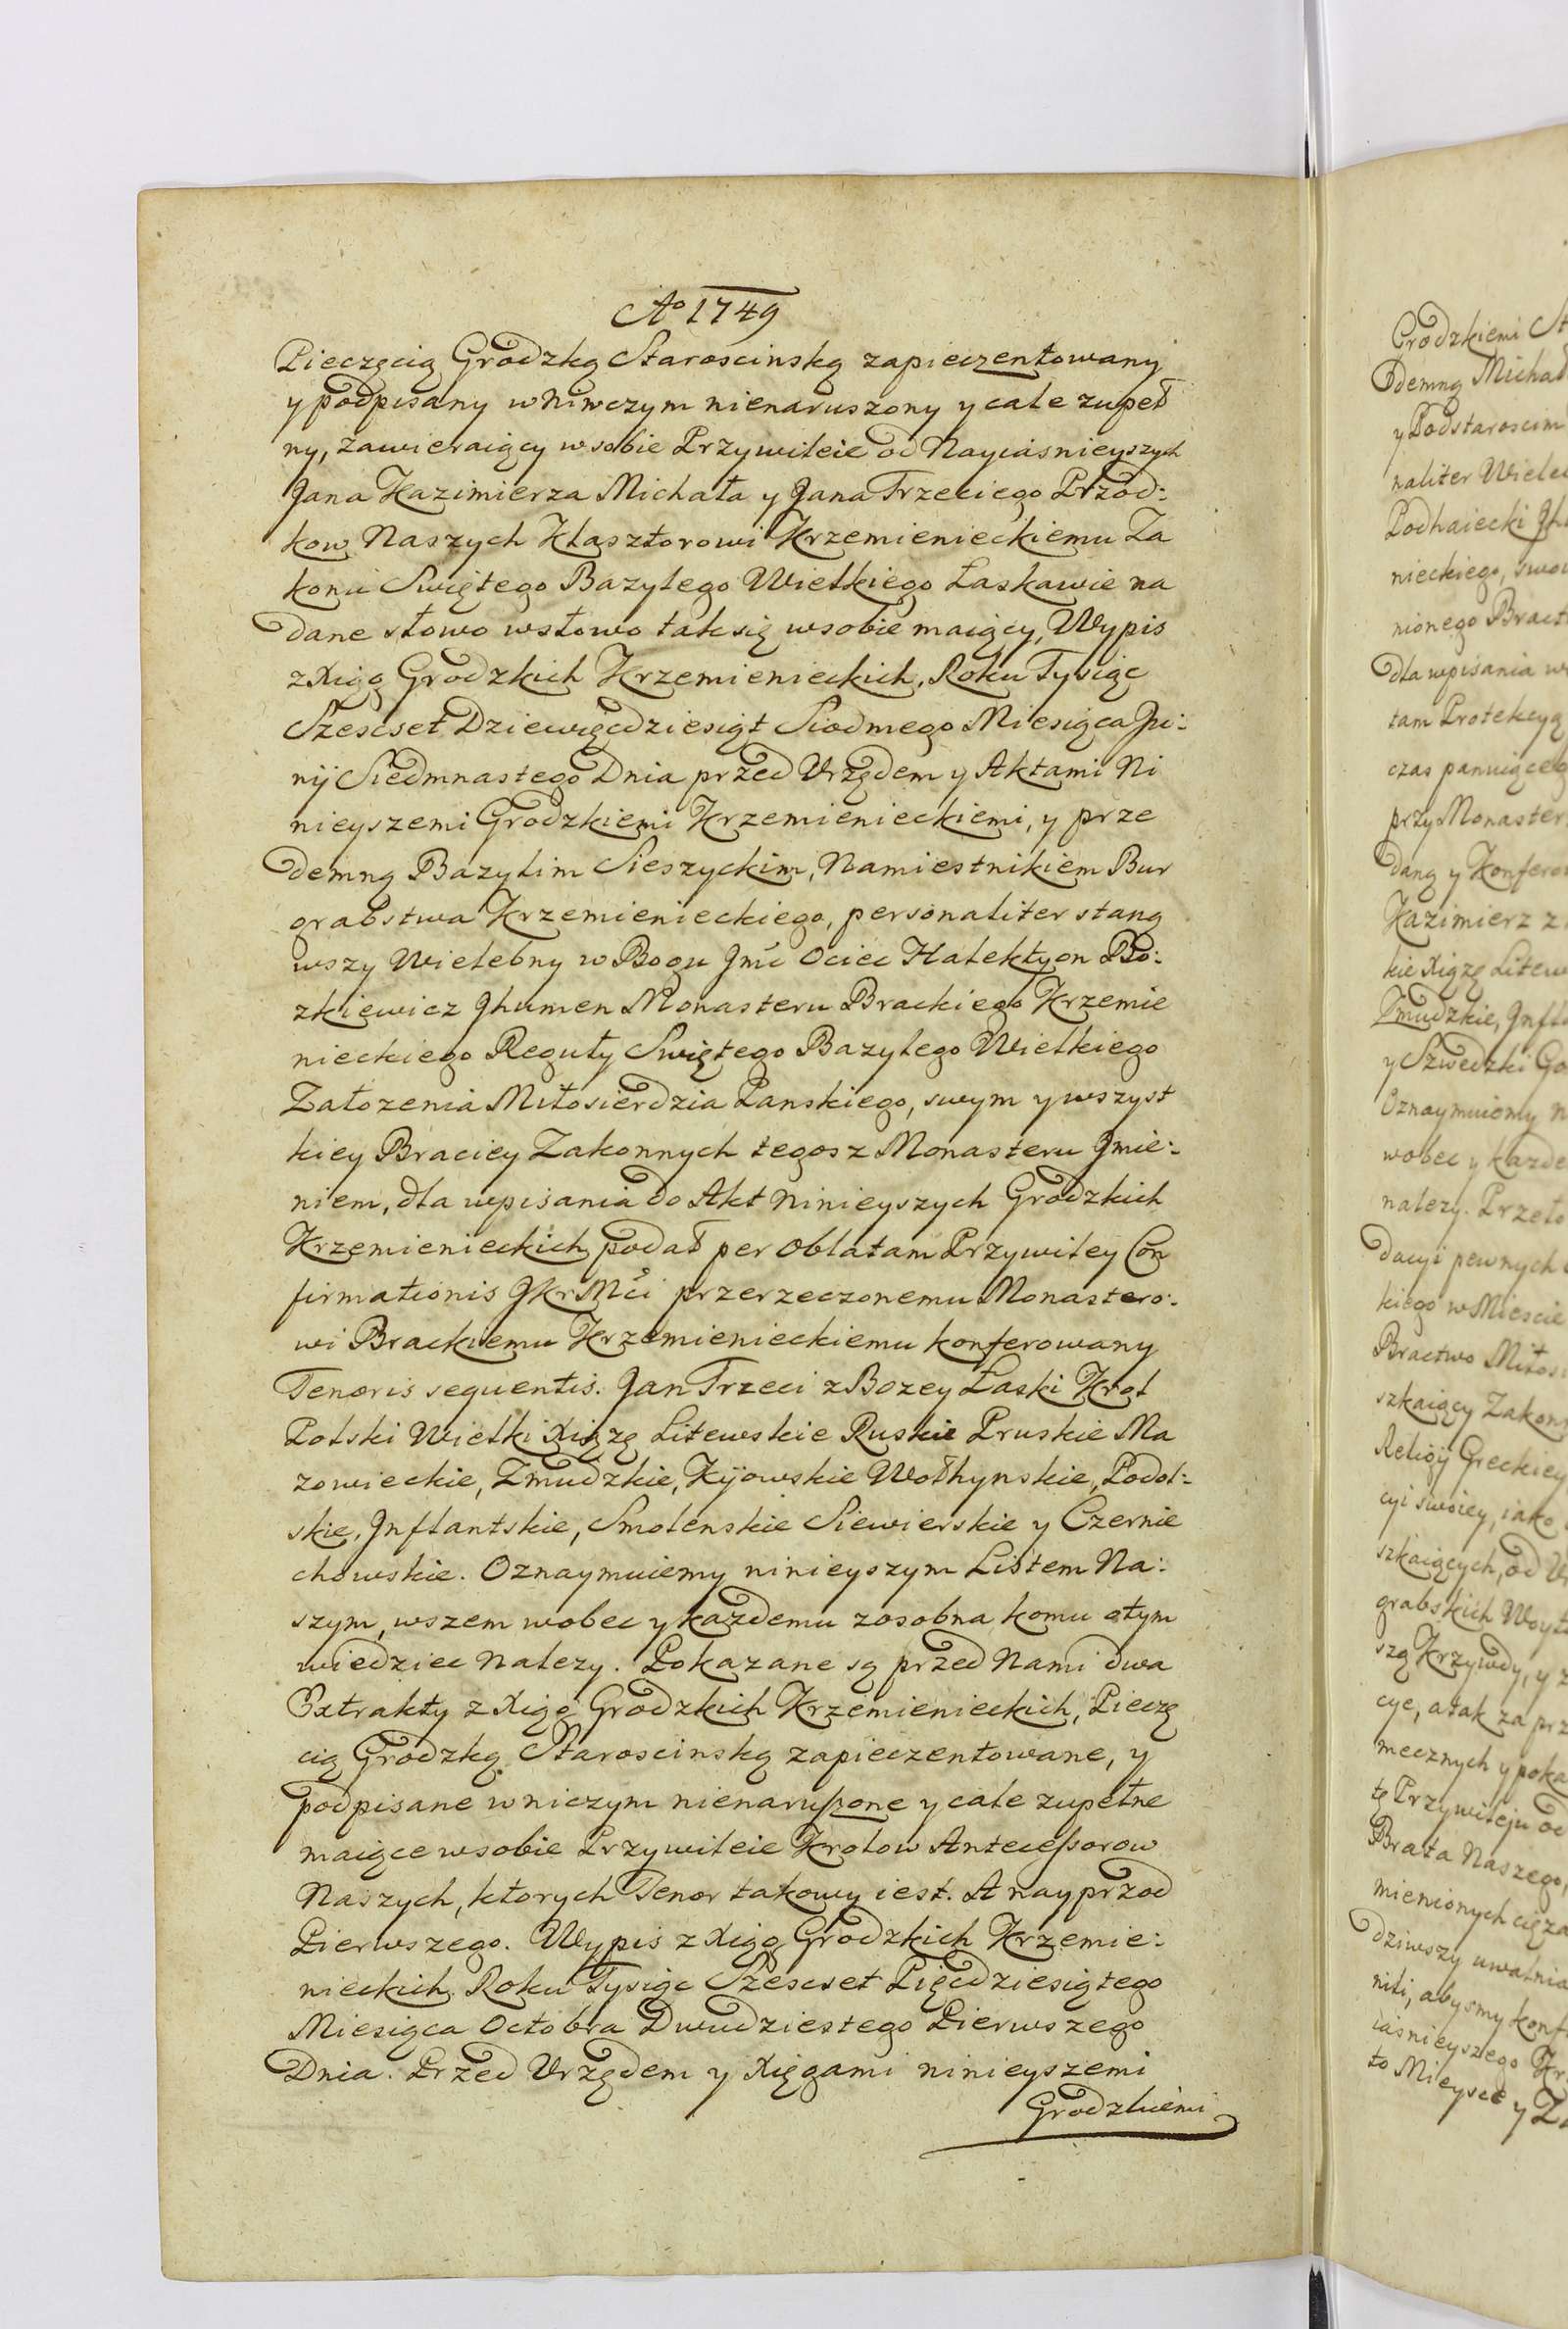 Ao 1749
Pieczęcią Grodzką Staroscinską zapieczentowany
y podpisany w Niwczym nienaruszony y cale zupeł
ny, zawieraiący w sobie Przywileie od Nayiasnieyszych
Jana Kazimierza Michała y Jana Trzeciego Przod:
kow Naszych Klasztorowi Krzemienieckiemu Za
konu Swiętego Bazylego Wielkiego Łaskawie na
dane słowo wsłowo tak się wsobie maiący, Wypis
z Xiąg Grodzkich Krzemienieckich, Roku Tysiąc
Szescset Dziewięcdziesiąt Siodmego Miesiąca Ju:
nij Siedmnastego Dnia przed Urzędem y Aktami Ni
nieyszemi Grodzkiemi Krzemienieckiemi, y prze
demną Bazylim Sieszyckim, Namiestnikiem Bur
grabstwa Krzemienieckiego, personaliter staną
wszy Wielebny w Bogu Jmć Ociec Halektyon Bo:
zkiewicz Jhumen Monasteru Brackiego Krzemie
nieckiego Reguły Swiętego Bazylego Wielkiego
Załozenia Miłosierdzia Panskiego, swym y wszyst
kiey Braciey Zakonnych tegosz Monasteru Jmie:
niem, dla wpisania do Akt Ninieyszych Grodzkich
Krzemienieckich podał per Oblatam Przywiley Con
firmationis JKrMći przerzeczonemu Monastero:
wi Brackiemu Krzemienieckiemu konferowany
Tenoris sequentis. Jan Trzeci z Bozey Łaski Krol
Polski Wielki Xiążę Litewskie Ruskie Pruskie Ma
zowieckie, Zmudzkie, Kijowskie Wołhynskie, Podol:
skie, Jnflantskie, Smolenskie Siewierskie y Czernie
chowskie. Oznaymuiemy ninieyszym Listem Na:
szym, wszem wobec y każdemu zosobna komu otym
wiedziec Nalezy. Pokazane są przed Nami dwa
Extrakty z Xiąg Grodzkich Krzemienieckich, Pieczę
cią Grodzką Staroscinską zapieczentowane, y
podpisane wniczym nienaruszone y cale zupełne
maiące wsobie Przywileie Krolow Antecessorow
Naszych, ktorych Tenor takowy iest. A nayprzod
Pierwszego. Wypis z Xiąg Grodzkich Krzemie:
nieckich Roku Tysiąc Szescset Pięcdziesiątego
Miesiąca Octobra Dwudziestego Pierwszego
Dnia. Przed Urzędem y Xięgami ninieyszemi
Grodzkiemi
Grodzkiemi
demną Michał
y Podstaroscim
naliter
Podhaiecki
nieckiego,
nionego
dla wpisania
tam Protekcyą
czas panuiącego
przy
daną y
Kazimierz z
kie Xiążę
Zmudzkie,
y Szwedzki
Oznaymuiemy
wobec y
nalezy. Przeto
dacyi pewnych
kiego w Miescie
Bractwo
szkaiący
Religij Greckiey
cyi swoiey, iako
szkaiących, od
grabskich
szą Krzywdy, y
cye, a tak za
mecznych y
tę Przywileju od
Brata Naszego,
mienionych
dziwszy
nili, abysmy
iasnieyszego
to Mieysce y